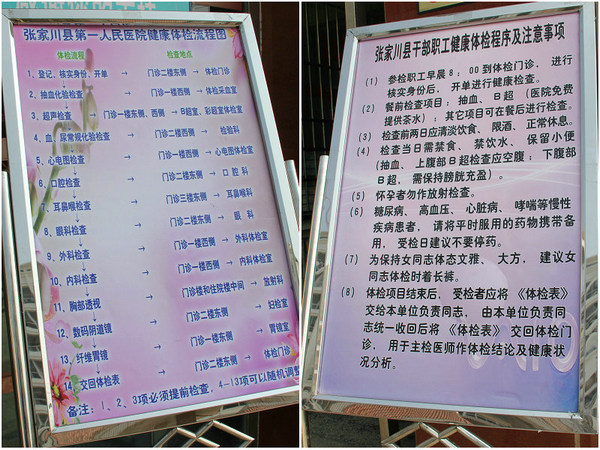 张家川县第一人民医院健康体检流程图
体检流程 检查地点
1、登记、核实身份、开单 → 门诊二楼东侧 → 体检门诊
2、抽血化验检查 → 门诊一楼西侧 → 体检采血室
3、超声检查 → 门诊一楼东侧、西侧 → B超室、彩超室体检室
4、血、尿常规化验检查 → 门诊二楼西侧 → 检验科
5、心电图检查 → 门诊一楼西侧 → 心电图体检室
6、口腔检查 → 门诊二楼东侧 → 口腔科
7、耳鼻喉检查 → 门诊三楼东侧 → 耳鼻喉科
8、眼科检查 → 门诊二楼东侧 → 眼科
9、外科检查 → 门诊一楼西侧 → 外科体检室
10、内科检查 → 门诊一楼西侧 → 内科体检室
11、胸部透视 → 门诊楼和住院楼中间 → 放射科
12、数码阴道镜 → 门诊二楼东侧 → 妇检室
13、纤维胃镜 → 门诊一楼东侧 → 胃镜室
14、交回体检表 → 门诊二楼东侧 → 体检门诊
备注：1、2、3项必须提前检查，4-13项可以随机调整
张家川县干部职工健康体检程序及注意事项
(1) 参检职工早晨8：00到体检门诊，进行
核实身份后，开单进行健康检查。
(2) 餐前检查项目：抽血、B超（医院免费
提供茶水）；其它项目可在餐后进行检查。
(3) 检查前两日应清淡饮食、限酒、正常休息。
(4) 检查当日需禁食、禁饮水、保留小便
（抽血、上腹部B超检查应空腹；下腹部
B超，需保持膀胱充盈）。
(5) 怀孕者勿作放射检查。
(6) 糖尿病、高血压、心脏病、哮喘等慢性
疾病患者，请将平时服用的药物携带备
用，受检日建议不要停药。
(7) 为保持女同志体态文雅、大方，建议女
同志体检时着长裤。
(8) 体检项目结束后，受检者应将《体检表》
交给本单位负责同志，由本单位负责同
志统一收回后将《体检表》交回体检门
诊，用于主检医师作体检结论及健康状
况分析。